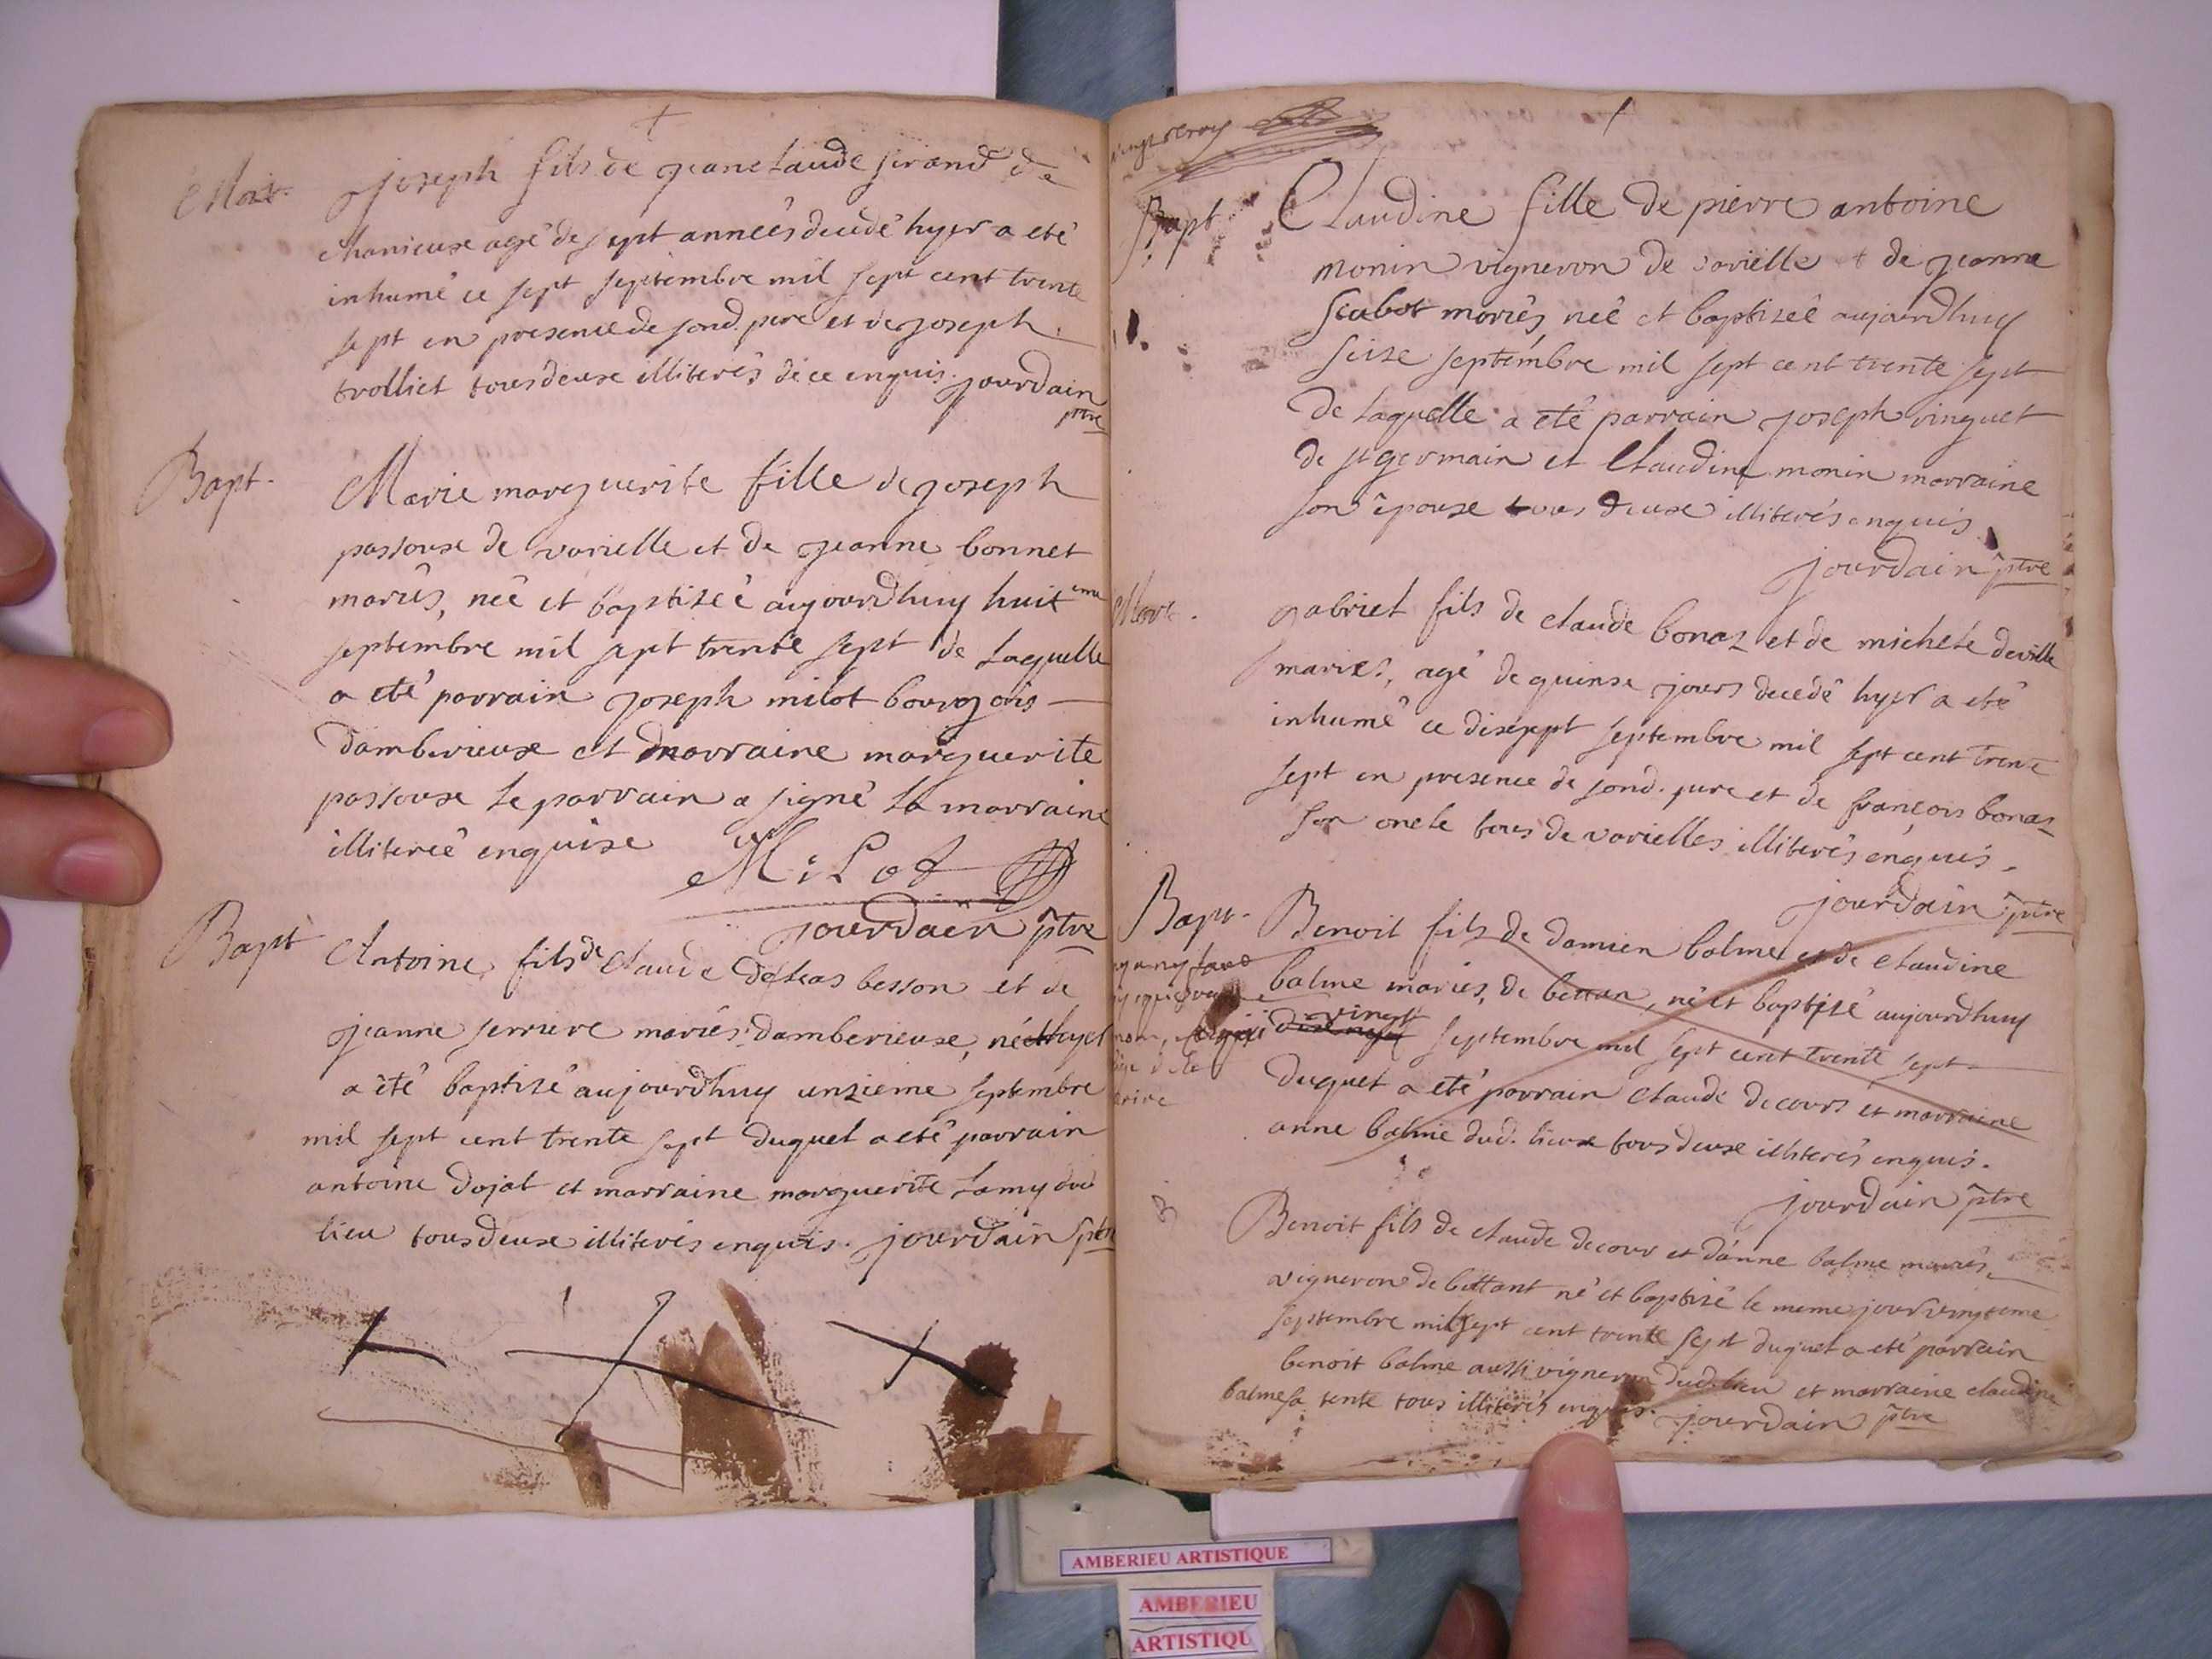 Mort.
joseph fils de jeanclaude sirand de
chanieux agé de sept années decedé hyer a eté
inhumé ce sept septembre mil sept cent trente
sept en presence de sond. pere et de joseph
trolliet tous deux illiterés de ce enquis. jourdain
ptre
Bapt.
Marie marguerite fille de joseph
passoux de varielle et de jeanne bonnet
mariés, née et baptizée aujourdhuy huit eme
septembre mil sept trente sept de laquelle
a eté parrain joseph milot bourgois
damberieux et marraine marguerite
passoux le parrain a signé la marraine
illiterée enquise
Milot
jourdain ptre
Bapt
Antoine fils de claude deleas besson et de
jeanne serriere mariés damberieux, né hyer
a été baptizé aujourdhuy unzieme septembre
mil sept cent trente sept duquel a eté parrain
antoine dojat et marraine marguerite lamy dud
lieu tous deux illiterés enquis. jourdain ptre
Bapt
Claudine fille de pierre antoine
monin vigneron de varielle et de jeanne
mariés, née et baptizée aujourdhuy
seize septembre mil sept cent trente sept
de laquelle a eté parrain joseph vinguet
de st germain et claudine monin marraine
son épouse tous deux illiterés enquis
jourdain ptre
Mort.
gabriel fils de claude bonaz et de michele deville
mariés, agé de quinze jours decedé hyer a eté
inhumé ce dixsept septembre mil sept cent trente
sept en presence de sond. pere et de françois bonaz
son oncle tous de varielles illiterés enquis.
jourdain ptre
Bapt.
Benoit fils de damien balme et de claudine
balme mariés, de bettan, né et baptizé aujourdhuy
vingt
dixneuf septembre mil sept cent trente sept
duquel a eté parrain claude decours et marraine
anne balme dud. lieux tous deux illiterés enquis.
jourdain ptre
Benoit fils de claude decour et d'anne balme mariés
vigneron de bettant né et baptizé le meme jour vingtieme
septembre mil sept cent trente sept duquel a eté parrain
benoit balme aussi vigneron dud. lieu et marraine claudine
balme sa tente tous illiterés enquis. jourdain ptre
AMBERIEU ARTISTIQUE
AMBERIEU
ARTISTIQU